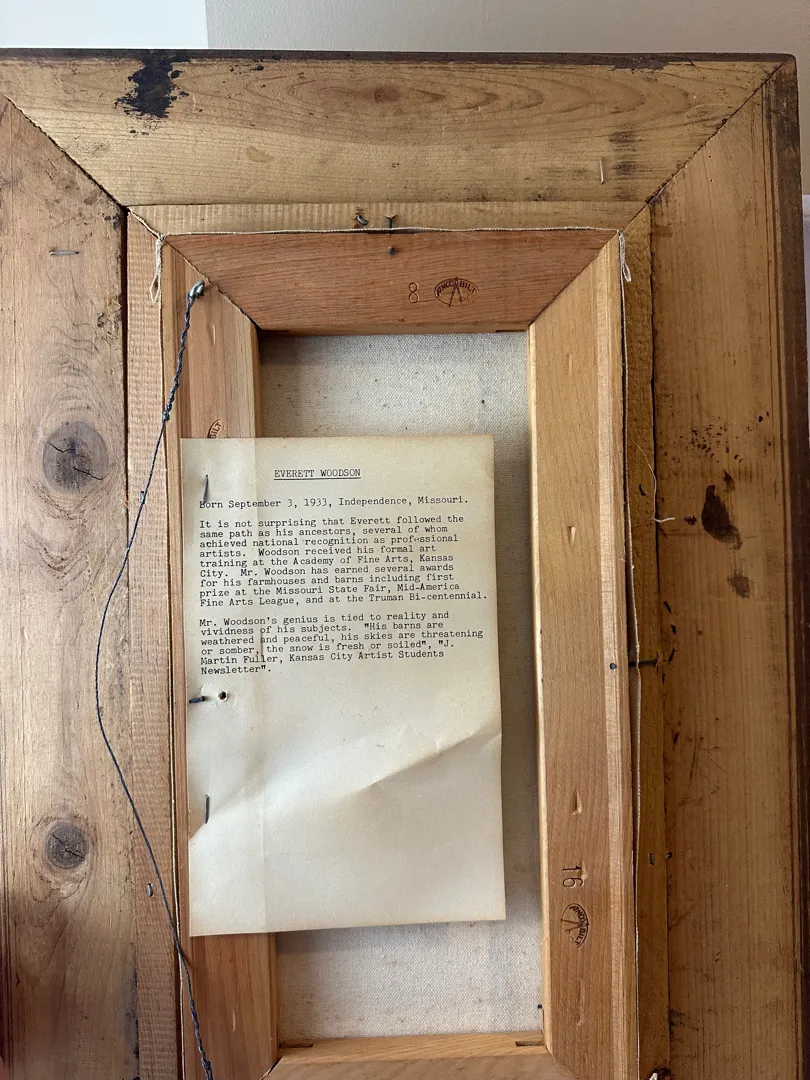 8
ANCO BILT
BILT
EVERETT WOODSON
Born September 3, 1933, Independence, Missouri.
It is not surprising that Everett followed the
same path as his ancestors, several of whom
achieved national recognition as professional
artists. Woodson received his formal art
training at the Academy of Fine Arts, Kansas
City. Mr. Woodson has earned several awards
for his farmhouses and barns including first
prize at the Missouri State Fair, Mid-America
Fine Arts League, and at the Truman Bi-centennial.
Mr. Woodson's genius is tied to reality and
vividness of his subjects. "His barns are
weathered and peaceful, his skies are threatening
or somber, the snow is fresh or soiled", "J.
Martin Fuller, Kansas City Artist Students
Newsletter".
16
ANCO BILT